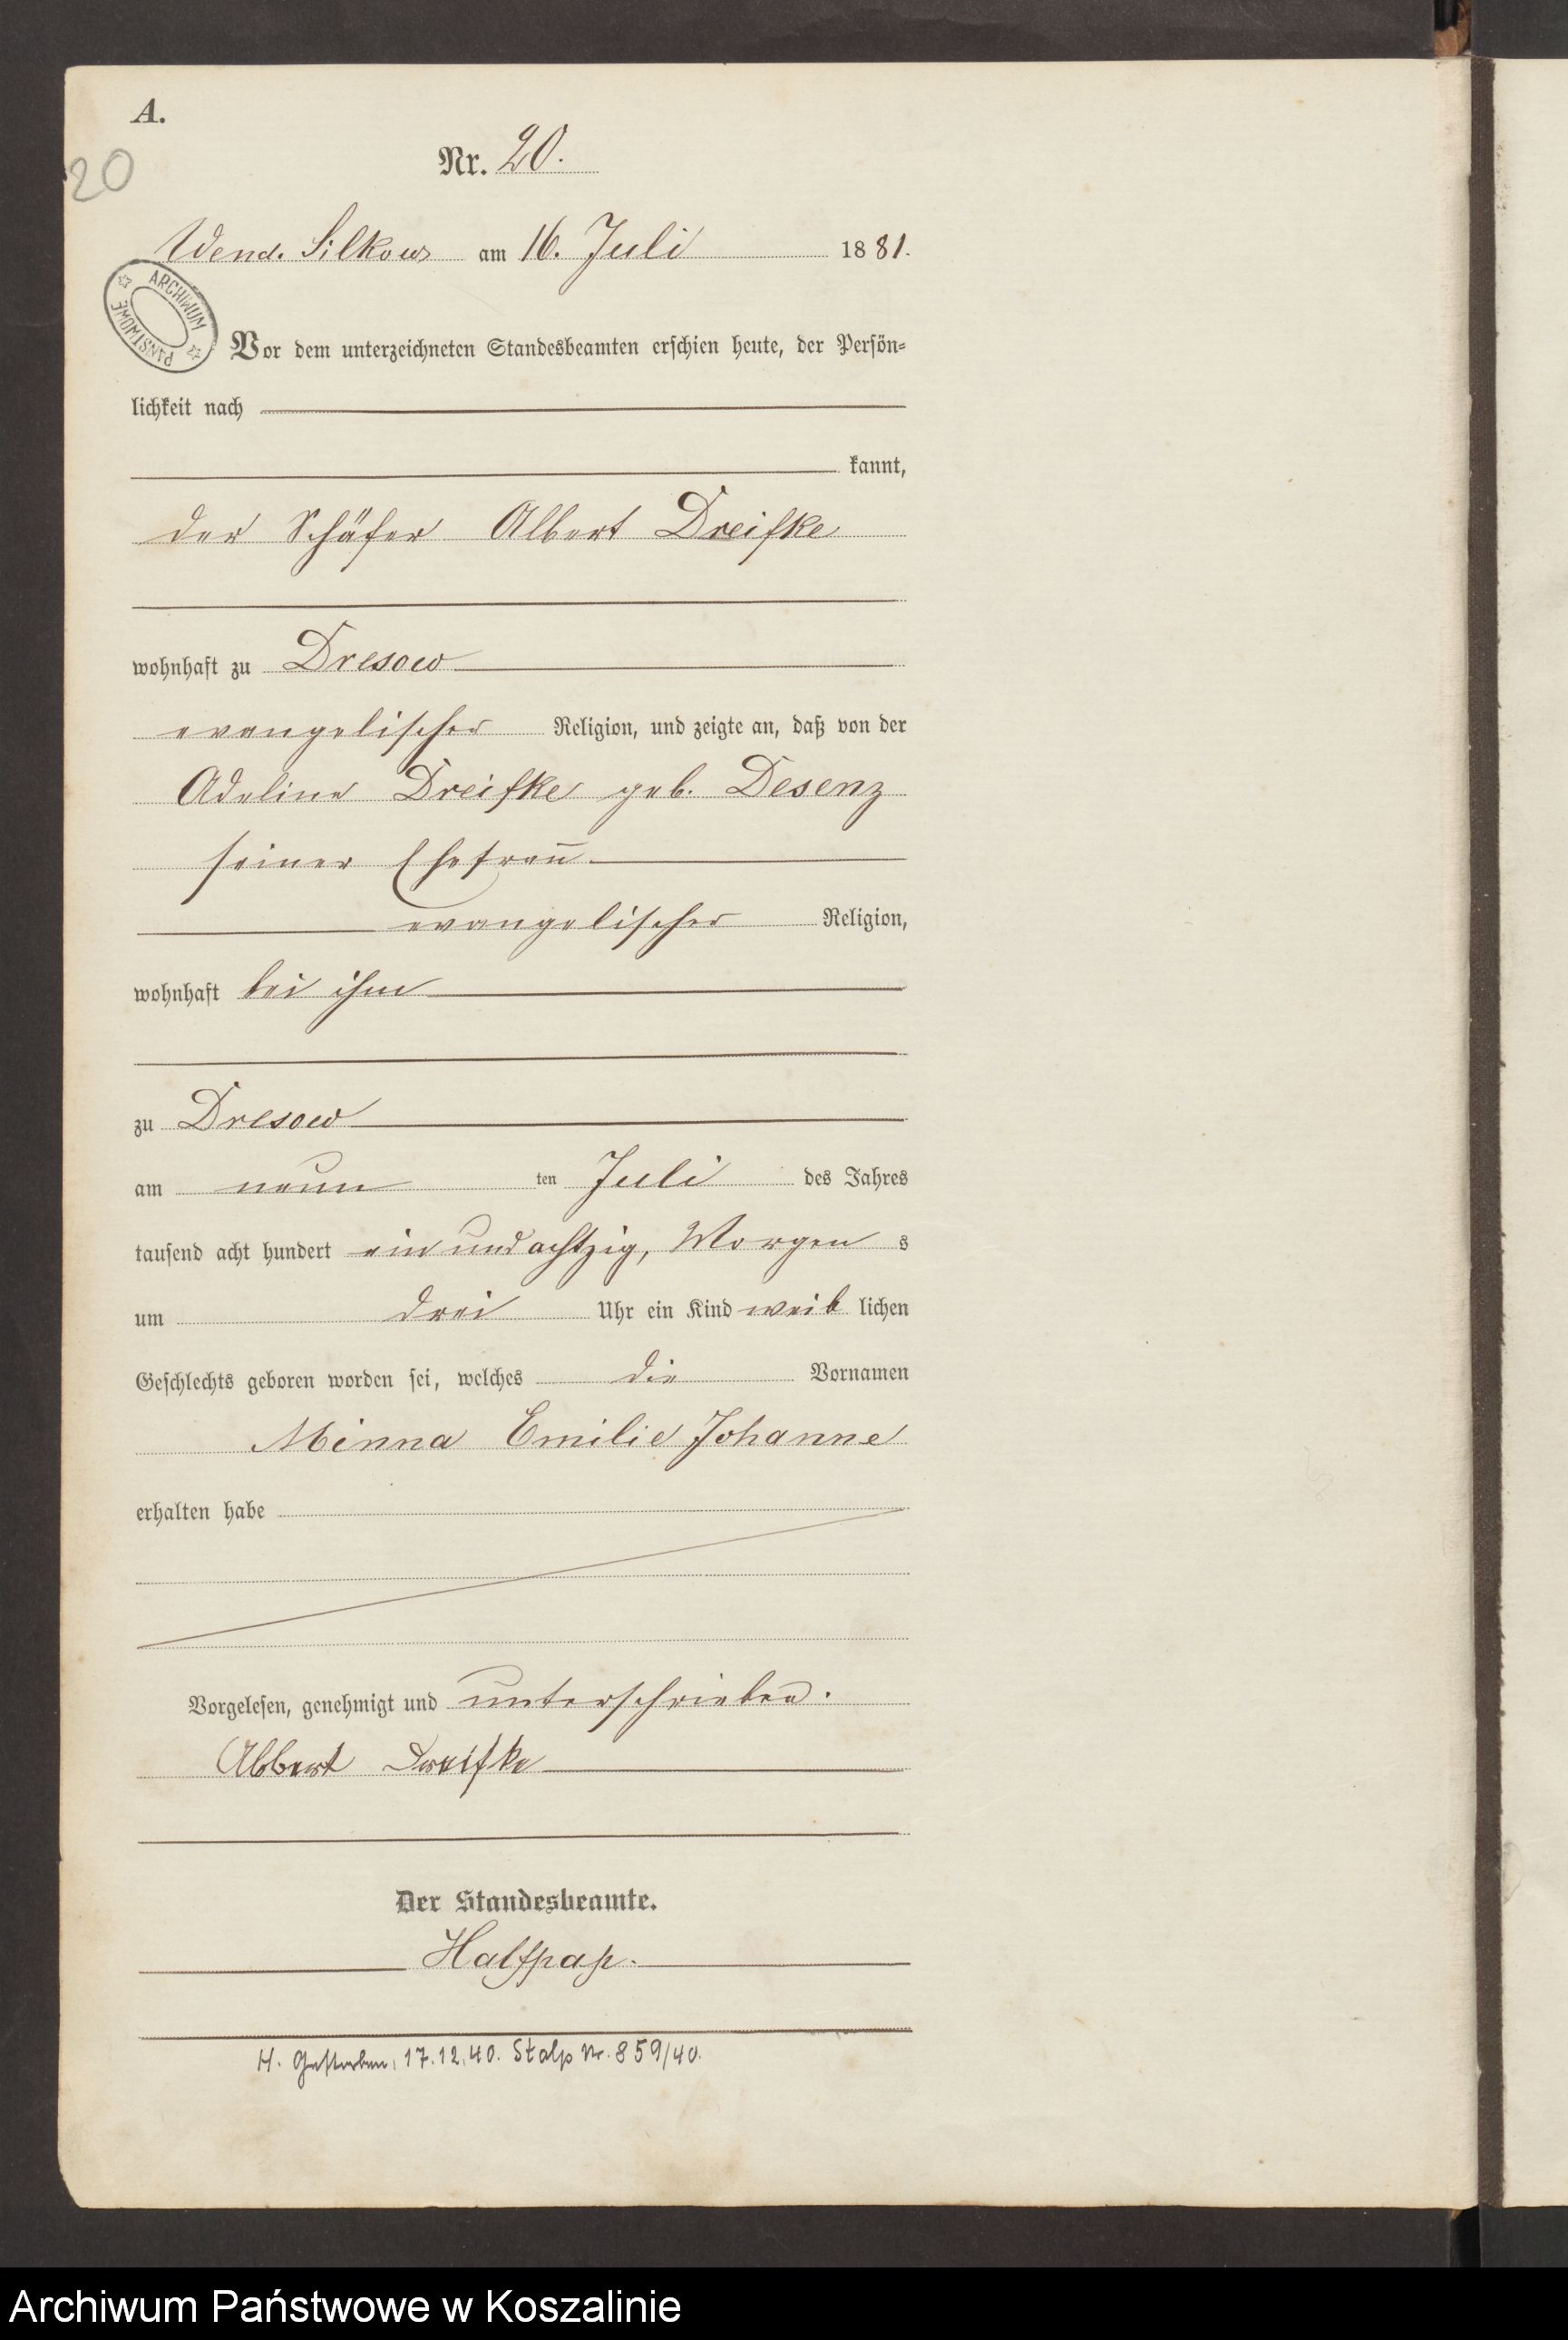 A.
20
Nr. 20.
Wend. Silkow am 16. Juli 1881.
ARCHIWUM PAŃSTWOWE
Vor dem unterzeichneten Standesbeamten erschien heute, der Persön-
lichkeit nach
kannt,
der Schäfer Albert Dreifke
wohnhaft zu Dresow
evangelischer Religion, und zeigte an, daß von der
Adeline Dreifke geb. Desenz
seiner Ehefrau
evangelischer Religion,
wohnhaft bei ihm
zu Dresow
am neun ten Juli des Jahres
tausend acht hundert ein und achtzig, Morgen s
um drei Uhr ein Kind weib lichen
Geschlechts geboren worden sei, welches die Vornamen
Minna Emilie Johanne
erhalten habe
Vorgelesen, genehmigt und unterschrieben.
Albert Dreifke
Der Standesbeamte.
Halfpap.
H. Gestorben, 17.12.40. Stolp Nr. 859/40.
Archiwum Państwowe w Koszalinie